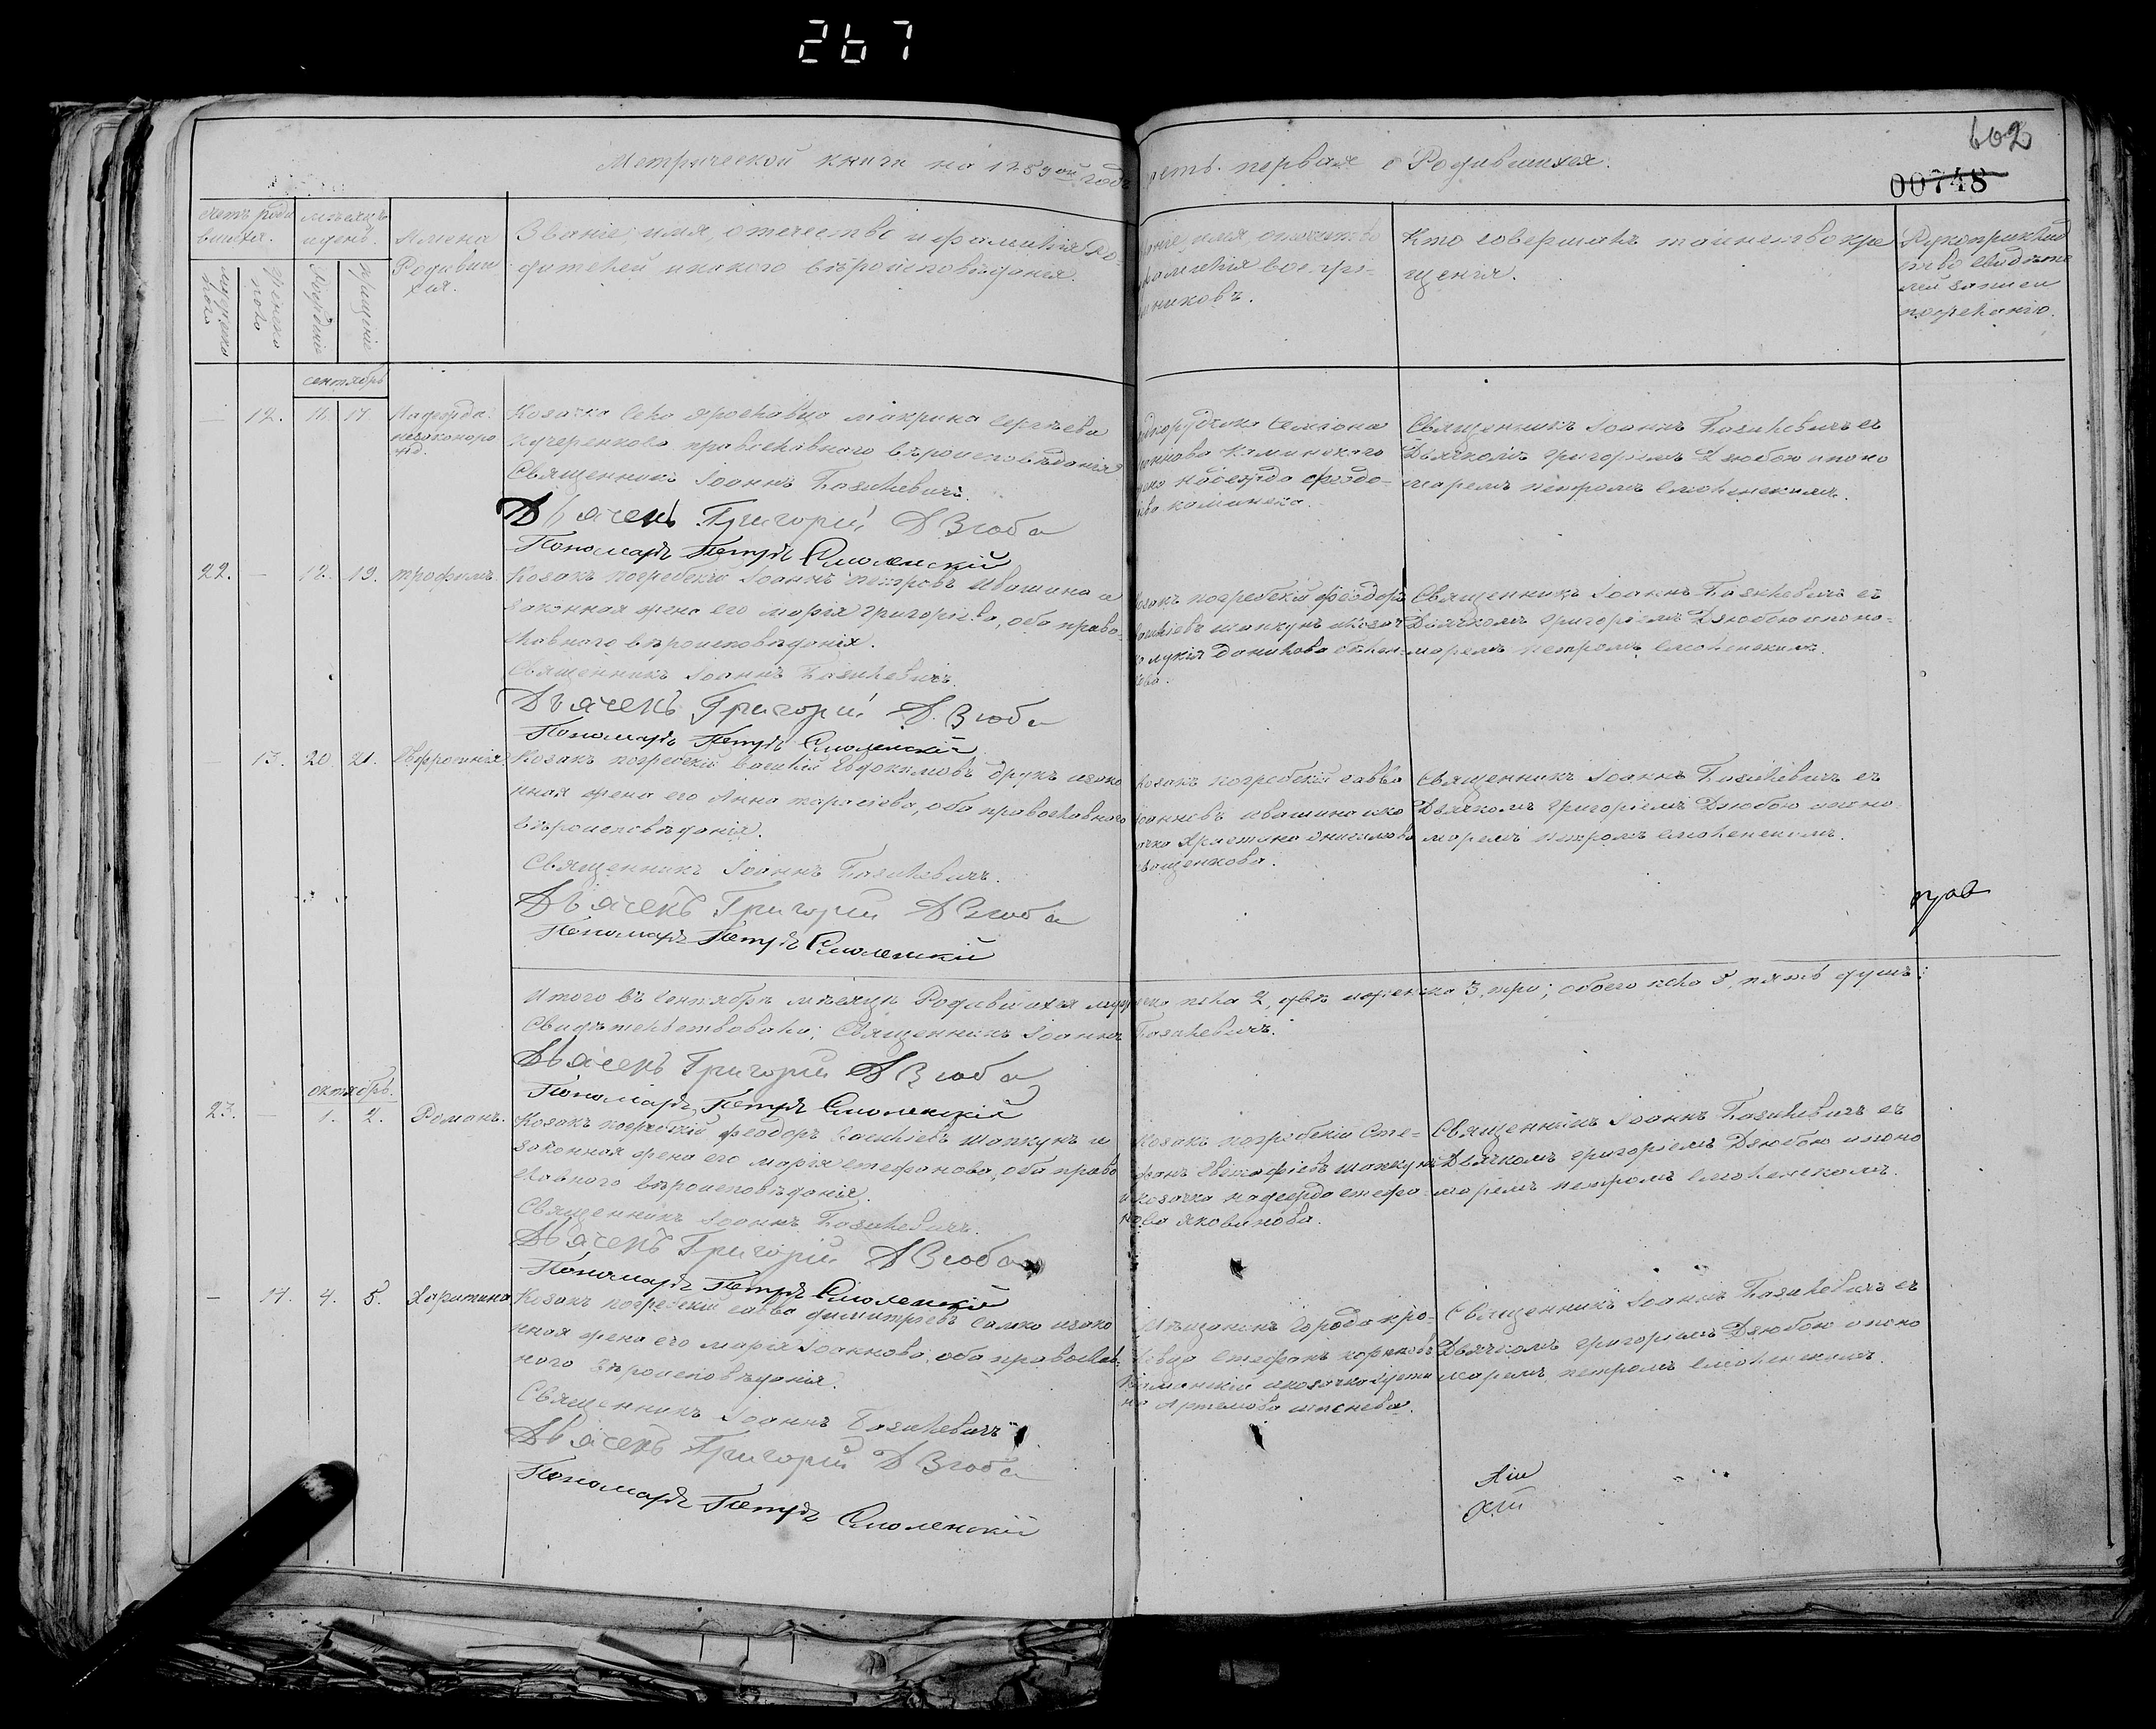 267
602
00748
Метрической книги на 1859ый годъ
часть первая о Родившихся.
Счетъ роди
вшихся.
мѣсяцъ
и день.
Имена
Родивши
хся.
Званіе, имя, отечество и фамилія Ро-
дителей и какого вѣроисповѣданія.
мужеско
женско
рожденіе
крещеніе
званіе, имя, отечество
фамилія воспрі-
мниковъ.
Кто совершалъ таинство кре
щенія.
Рукоприклад
ство свидѣте
лей записи
по желанію.
сентябрь
— 12. 11. 17. Надежда
незаконоро
жд.
Козачка села Макрина Сергѣева
Кучеренкова православнаго вѣроисповѣданія
Священникъ Іоаннъ Базилевичъ.
Дьячекъ Григорій Дзюба
Пономарь Петръ Смоленскій
Каминского
Надежда Феодо-
ва Каминска.
Священникъ Іоаннъ Базилевичъ съ
Дьячкомъ Григоріемъ Дзюбою и поно
маремъ Петромъ Смоленскимъ.
22. — 18. 19. Трофимъ.
Козакъ погребскій Іоаннъ Петровъ Ивашина и
законная жена его Марія Григоріева, оба право-
славного вѣроисповѣданія.
Священникъ Іоаннъ Базилевичъ.
Дьячекъ Григорій Дзюба
Пономарь Петръ Смоленскій
Козакъ погребскій Феодоръ
Шапкунъ и козач
ка Лукія Данилова
Священникъ Іоаннъ Базилевичъ съ
Дьячкомъ Григоріемъ Дзюбою и поно-
маремъ Петромъ Смоленскимъ.
— 13. 20. 21. Евфросинія.
Козакъ погребскій Василій Евдокимовъ Друкъ и зако
нная жена его Анна Тарасіева, оба православного
вѣроисповѣданія.
Священникъ Іоаннъ Базилевичъ.
Дьячекъ Григорій Дзюба
Пономарь Петръ Смоленскій
Козакъ погребскій Савва
Іоанновъ Ивашина и ко
зачка Христина Онисимова
Священникъ Іоаннъ Базилевичъ съ
Дьячкомъ Григоріемъ Дзюбою и поно
маремъ Петромъ Смоленскимъ.
Итого въ Сентябрѣ мѣсяцѣ Родившихся мужеска пола 2, два женска 3, три; обоего пола 5, пять душъ;
Свидѣтельствовали: Священникъ Іоаннъ Базилевичъ.
Дьячекъ Григорій Дзюба
Пономарь Петръ Смоленскій
октябрь.
23. — 1. 2. Романъ.
Козакъ погребскій Феодоръ Василіевъ Шапкунъ и
законная жена его Марія Стефанова, оба право
славного вѣроисповѣданія.
Священникъ Іоаннъ Базилевичъ.
Дьячекъ Григорій Дзюба
Пономарь Петръ Смоленскій
Козакъ погребскій Сте-
фанъ Евстафіевъ Шапкунъ
и козачка Надежда Стефа-
нова Яковинова.
Священникъ Іоаннъ Базилевичъ съ
Дьячкомъ Григоріемъ Дзюбою и поно
маремъ Петромъ Смоленскимъ.
— 14. 4. 5. Харитина
Козакъ погребскій Савва Димитріевъ Салко и зако
нная жена его Марія Іоаннова, оба православ-
ного вѣроисповѣданія.
Священникъ Іоаннъ Базилевичъ
Дьячекъ Григорій Дзюба
Пономарь Петръ Смоленскій
Мѣщанинъ города
Стефанъ
Каминскій и козачка Христи
на Артемова
Священникъ Іоаннъ Базилевичъ съ
Дьячкомъ Григоріемъ Дзюбою и поно
маремъ Петромъ Смоленскимъ.